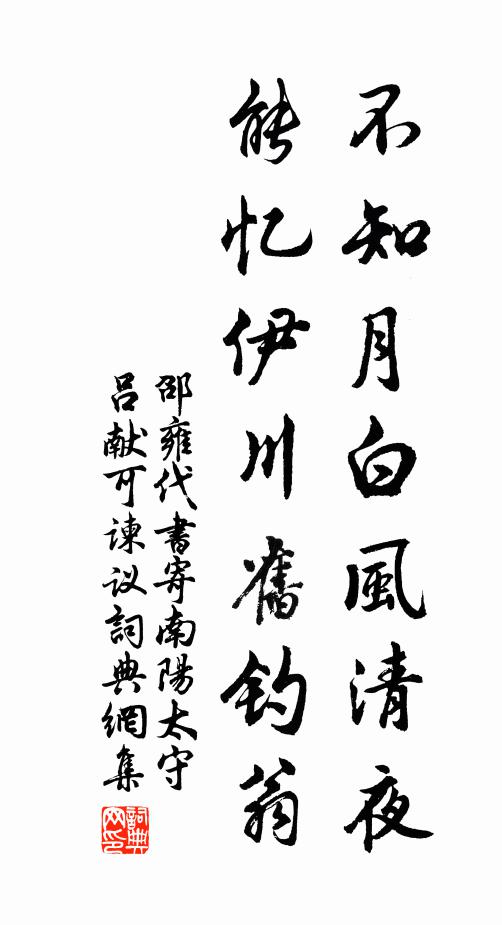 不知月白風清夜
能忆伊川舊钓翁
邵雍代書寄南陽太守
吕献可谏议詞典網集
詞典
网印